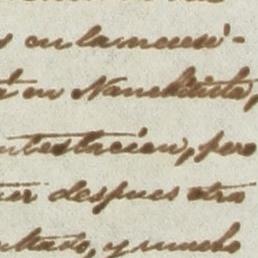 s en la necesi-
en Nanchititla,
ntestacion, pero
ner despues otro
ultado, y mucho